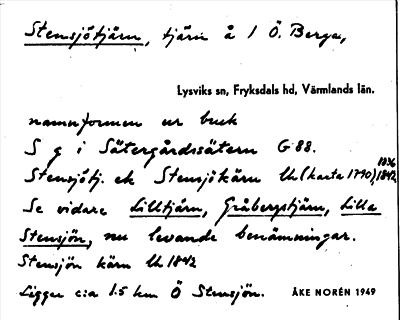 Stensjötjärn, tjärn å 1 Ö. Berga,
Lysviks sn, Fryksdals hd, Värmlands län.
namnformen ur bruk
S g i Sätergårdssätern G 88.
1836
Stensjötj. ek Stensjökärn Lh (karta 1790), 1842,
Se vidare Lilltjärn, Gråbergstjärn, Lilla
Stensjön, nu levande benämningar.
Stensjön kärn Lh 1842
Ligger c:a 1.5 km Ö Stensjön.
ÅKE NORÉN 1949